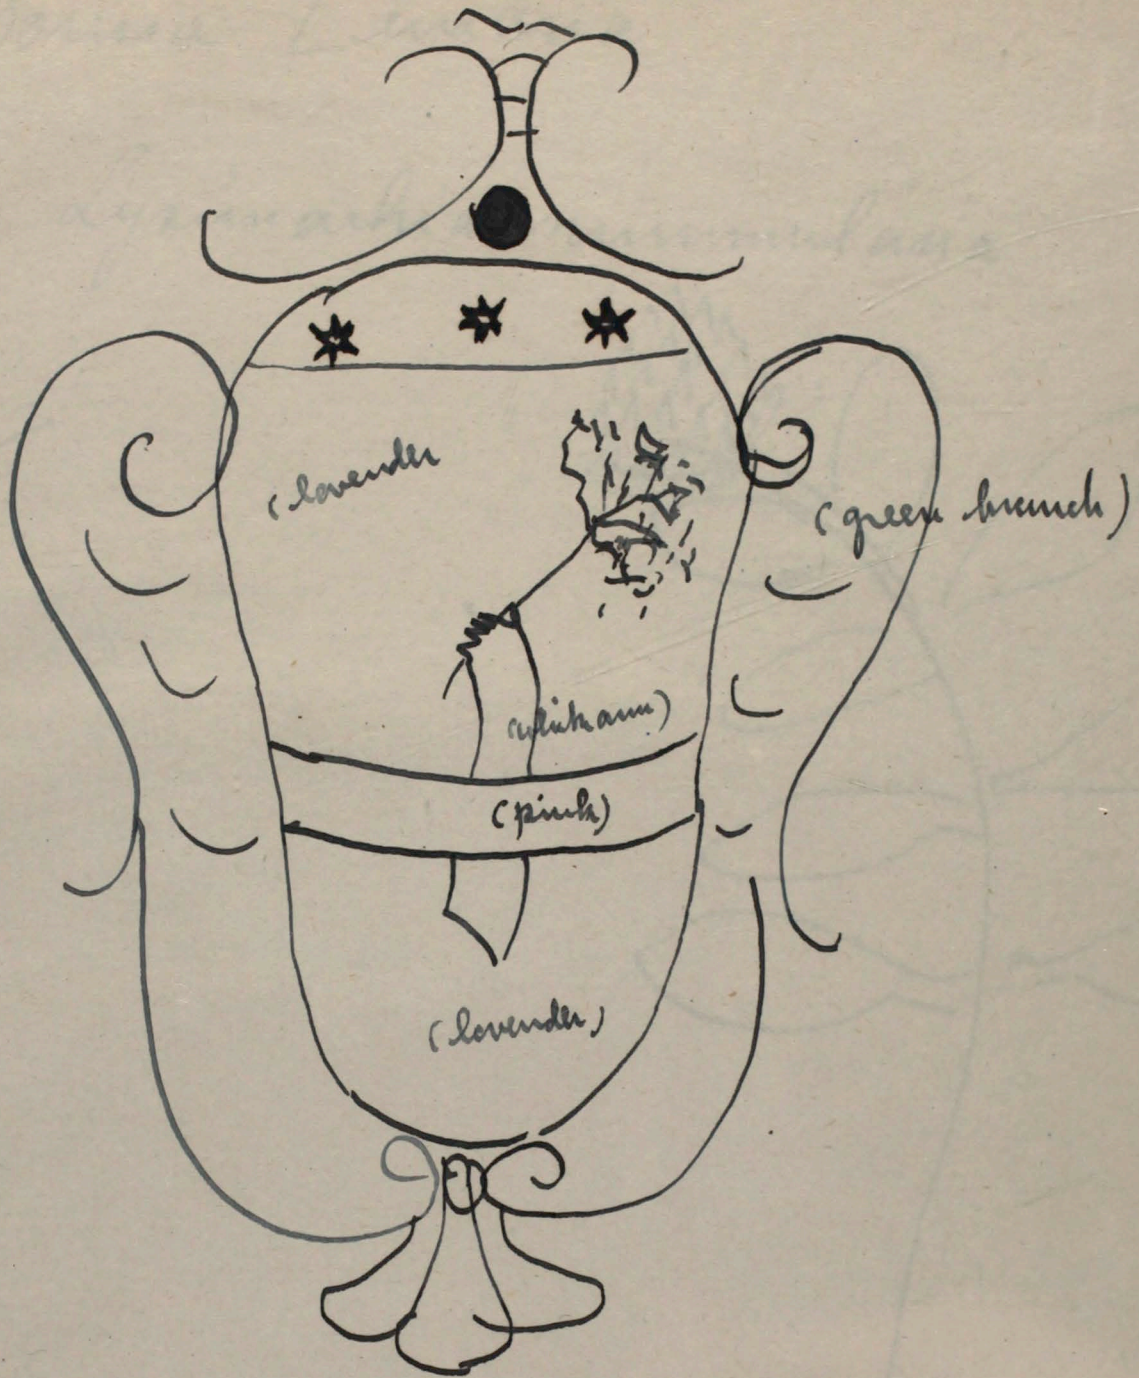 (lavender
(green branch)
(white arm)
(pink)
(lavender)